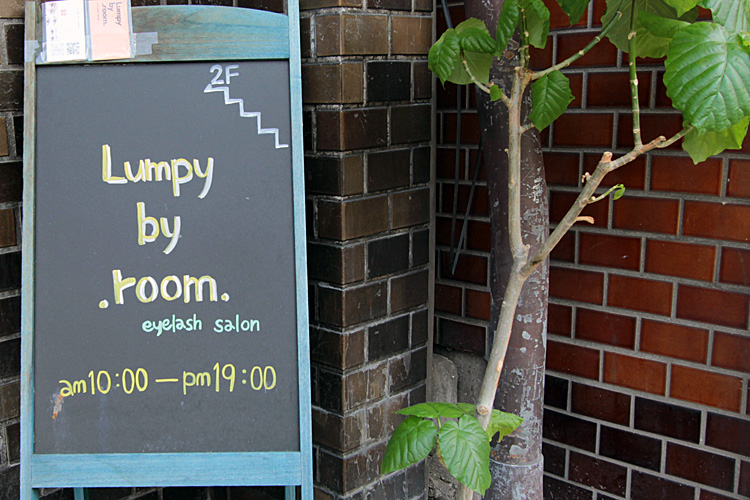 Lumpy
by
.room.
2F
Lumpy
by
.room.
eyelash salon
am10:00 — pm19:00